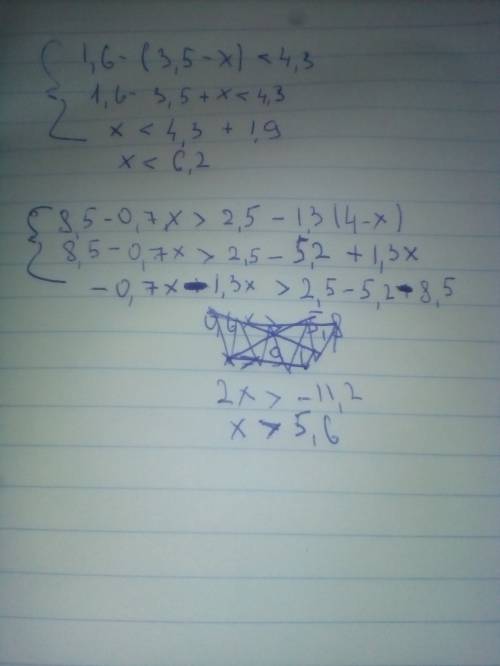 1,6 - (3,5 - x) < 4,3
1,6 - 3,5 + x < 4,3
x < 4,3 + 1,9
x < 6,2
8,5 - 0,7x > 2,5 - 1,3 (4 - x)
8,5 - 0,7x > 2,5 - 5,2 + 1,3x
- 0,7x - 1,3x > 2,5 - 5,2 - 8,5
2x > - 11,2
x > 5,6